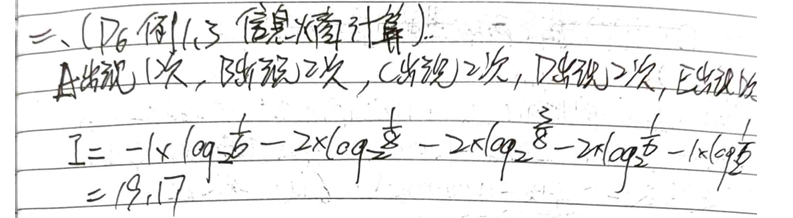 二、(P6 例1.3 信息熵计算).
A出现1次, B出现2次, C出现2次, D出现2次, E出现1次
I = -1×log₂1/6 - 2×log₂1/8 - 2×log₂3/8 - 2×log₂1/6 - 1×log₂1/6
= 19.17